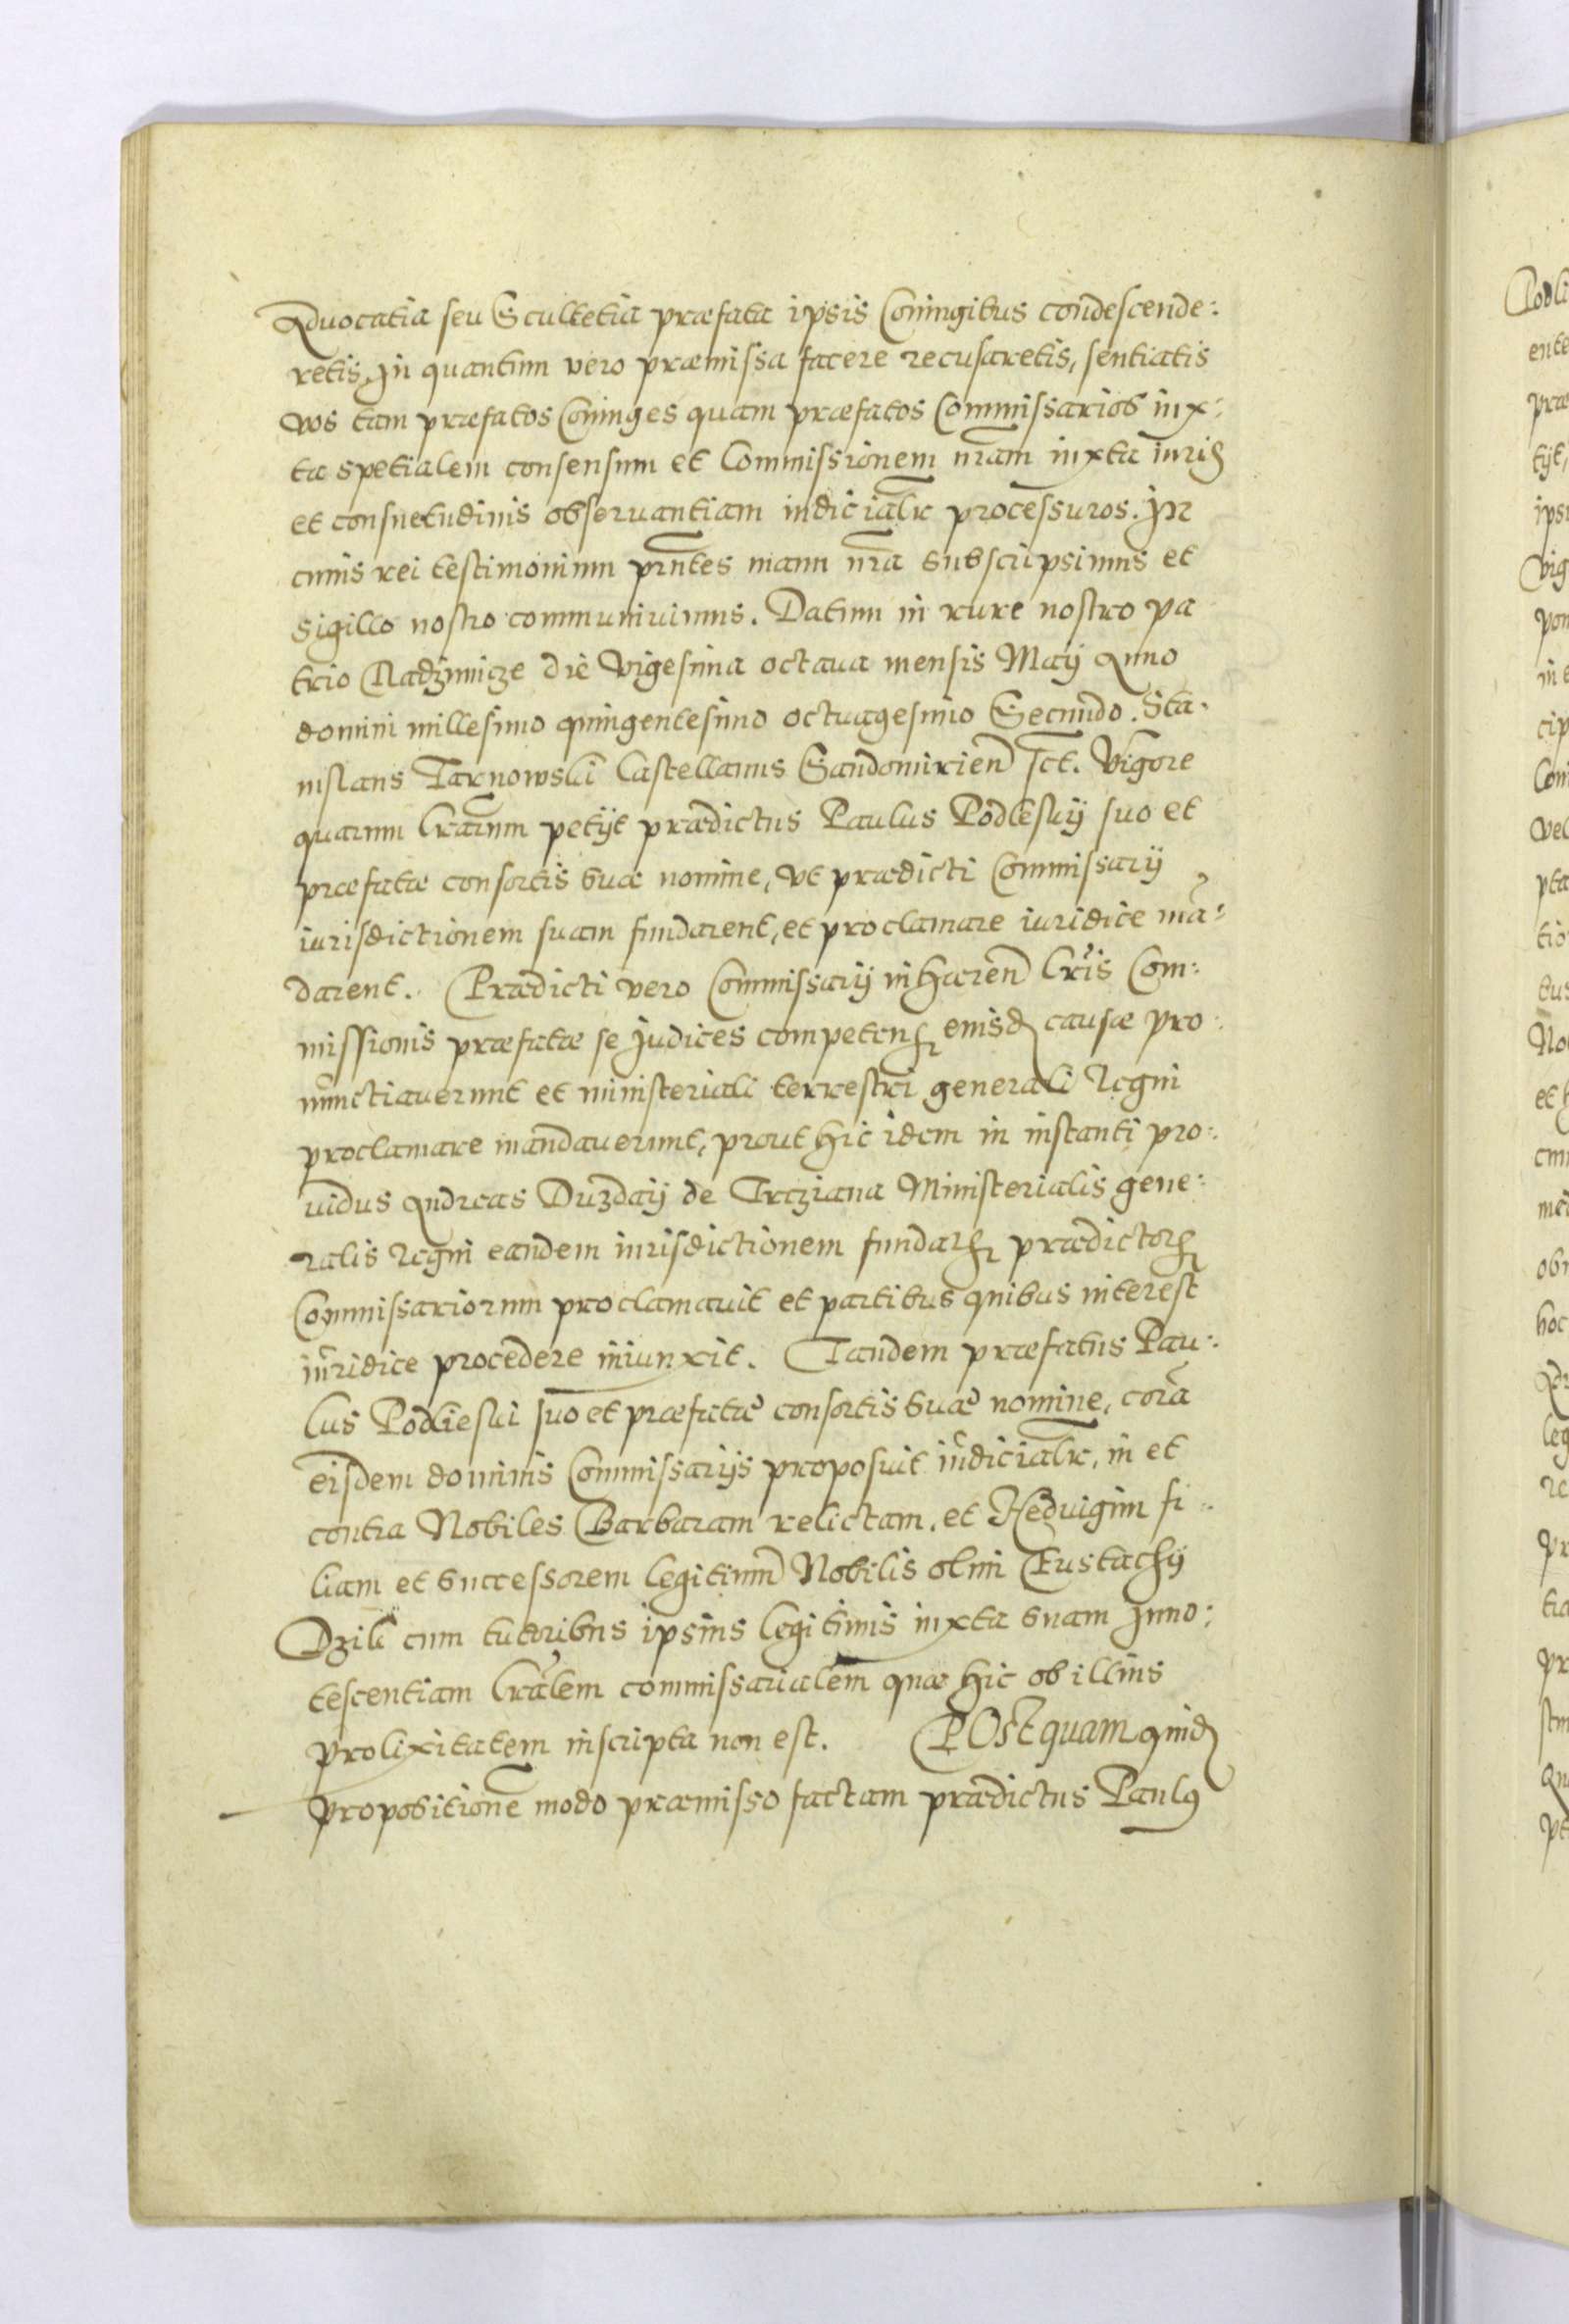 Aduocatia seu Scultetia præfata ipsis Coniugibus condescende:
retis, In quantum vero præmissa facere recusaretis, sentiatis
vos tam præfatos Coniuges quam præfatos Commissarios iux:
ta spetialem consensum et Commissionem nram iuxta iuris
et consuetudinis obseruantiam iudicialr processuros. In
cuius rei testimonium prntes manu nra subscripsimus et
sigillo nostro communiuimus. Datum in rure nostro pa
trio Radzimicze die vigesima octaua mensis Maij Anno
domini millesimo quingentesimo octuagesimo Secundo. Sta:
nislaus Tarnowski Castellanus Sandomirien sct. Vigore
quarum lrarum petijt prædictus Paulus Podleski suo et
præfatæ consortis suæ nomine, vt prædicti Commissarij
iurisdictionem suam fundarent, et proclamare iuridice mā:
darent. Prædicti vero Commissarij inhæren lris Com:
missionis præfatæ se Judices competen eiusd causæ pro:
nunctiauerunt et ministeriali terrestri generali Regni
proclamare mandauerunt, prout hic idem in instanti pro:
uidus Andreas Duzdaij de Trcziana Ministerialis gene:
ralis Regni eandem iurisdictionem fundat prædictor
Commissariorum proclamauit et partibus quibus interest
iuridice procedere iniunxit. Tandem præfatus Pau:
lus Podlieski suo et præfatæ consortis suæ nomine, corā
eisdem dominis Commissarijs proposuit iudicialr, in et
contra Nobiles Barbaram relictam, et Hedvigim fi:
liam et successorem legitimū Nobilis olim Eustachij
Dzili cum tutoribus ipsius legitimis iuxta suam Inno:
tescentiam lrālem commissarialem quæ hic ob illius
prolixitatem inscripta non est. POstquam quid
propositionē modo præmisso factam prædictus Paulus